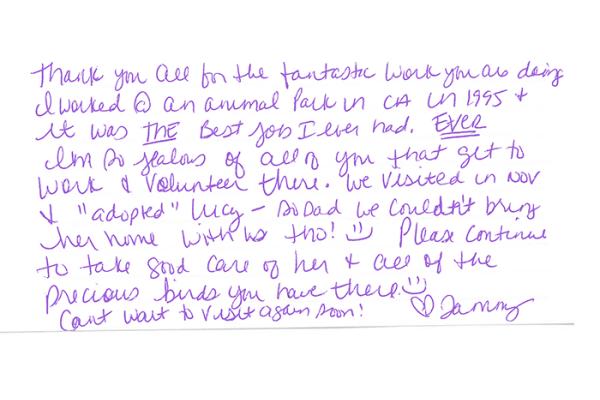 Thank you all for the fantastic work you are doing
I worked @ an animal park in CA in 1995 +
it was THE Best job I ever had. EVER
I'm so jealous of all of you that get to
work & volunteer there. We visited in Nov
& "adopted" Lucy - so sad we couldn't bring
her home with us tho! :) Please continue
to take good care of her & all of the
precious birds you have there. :)
Can't wait to visit again soon! ♡ Tammy